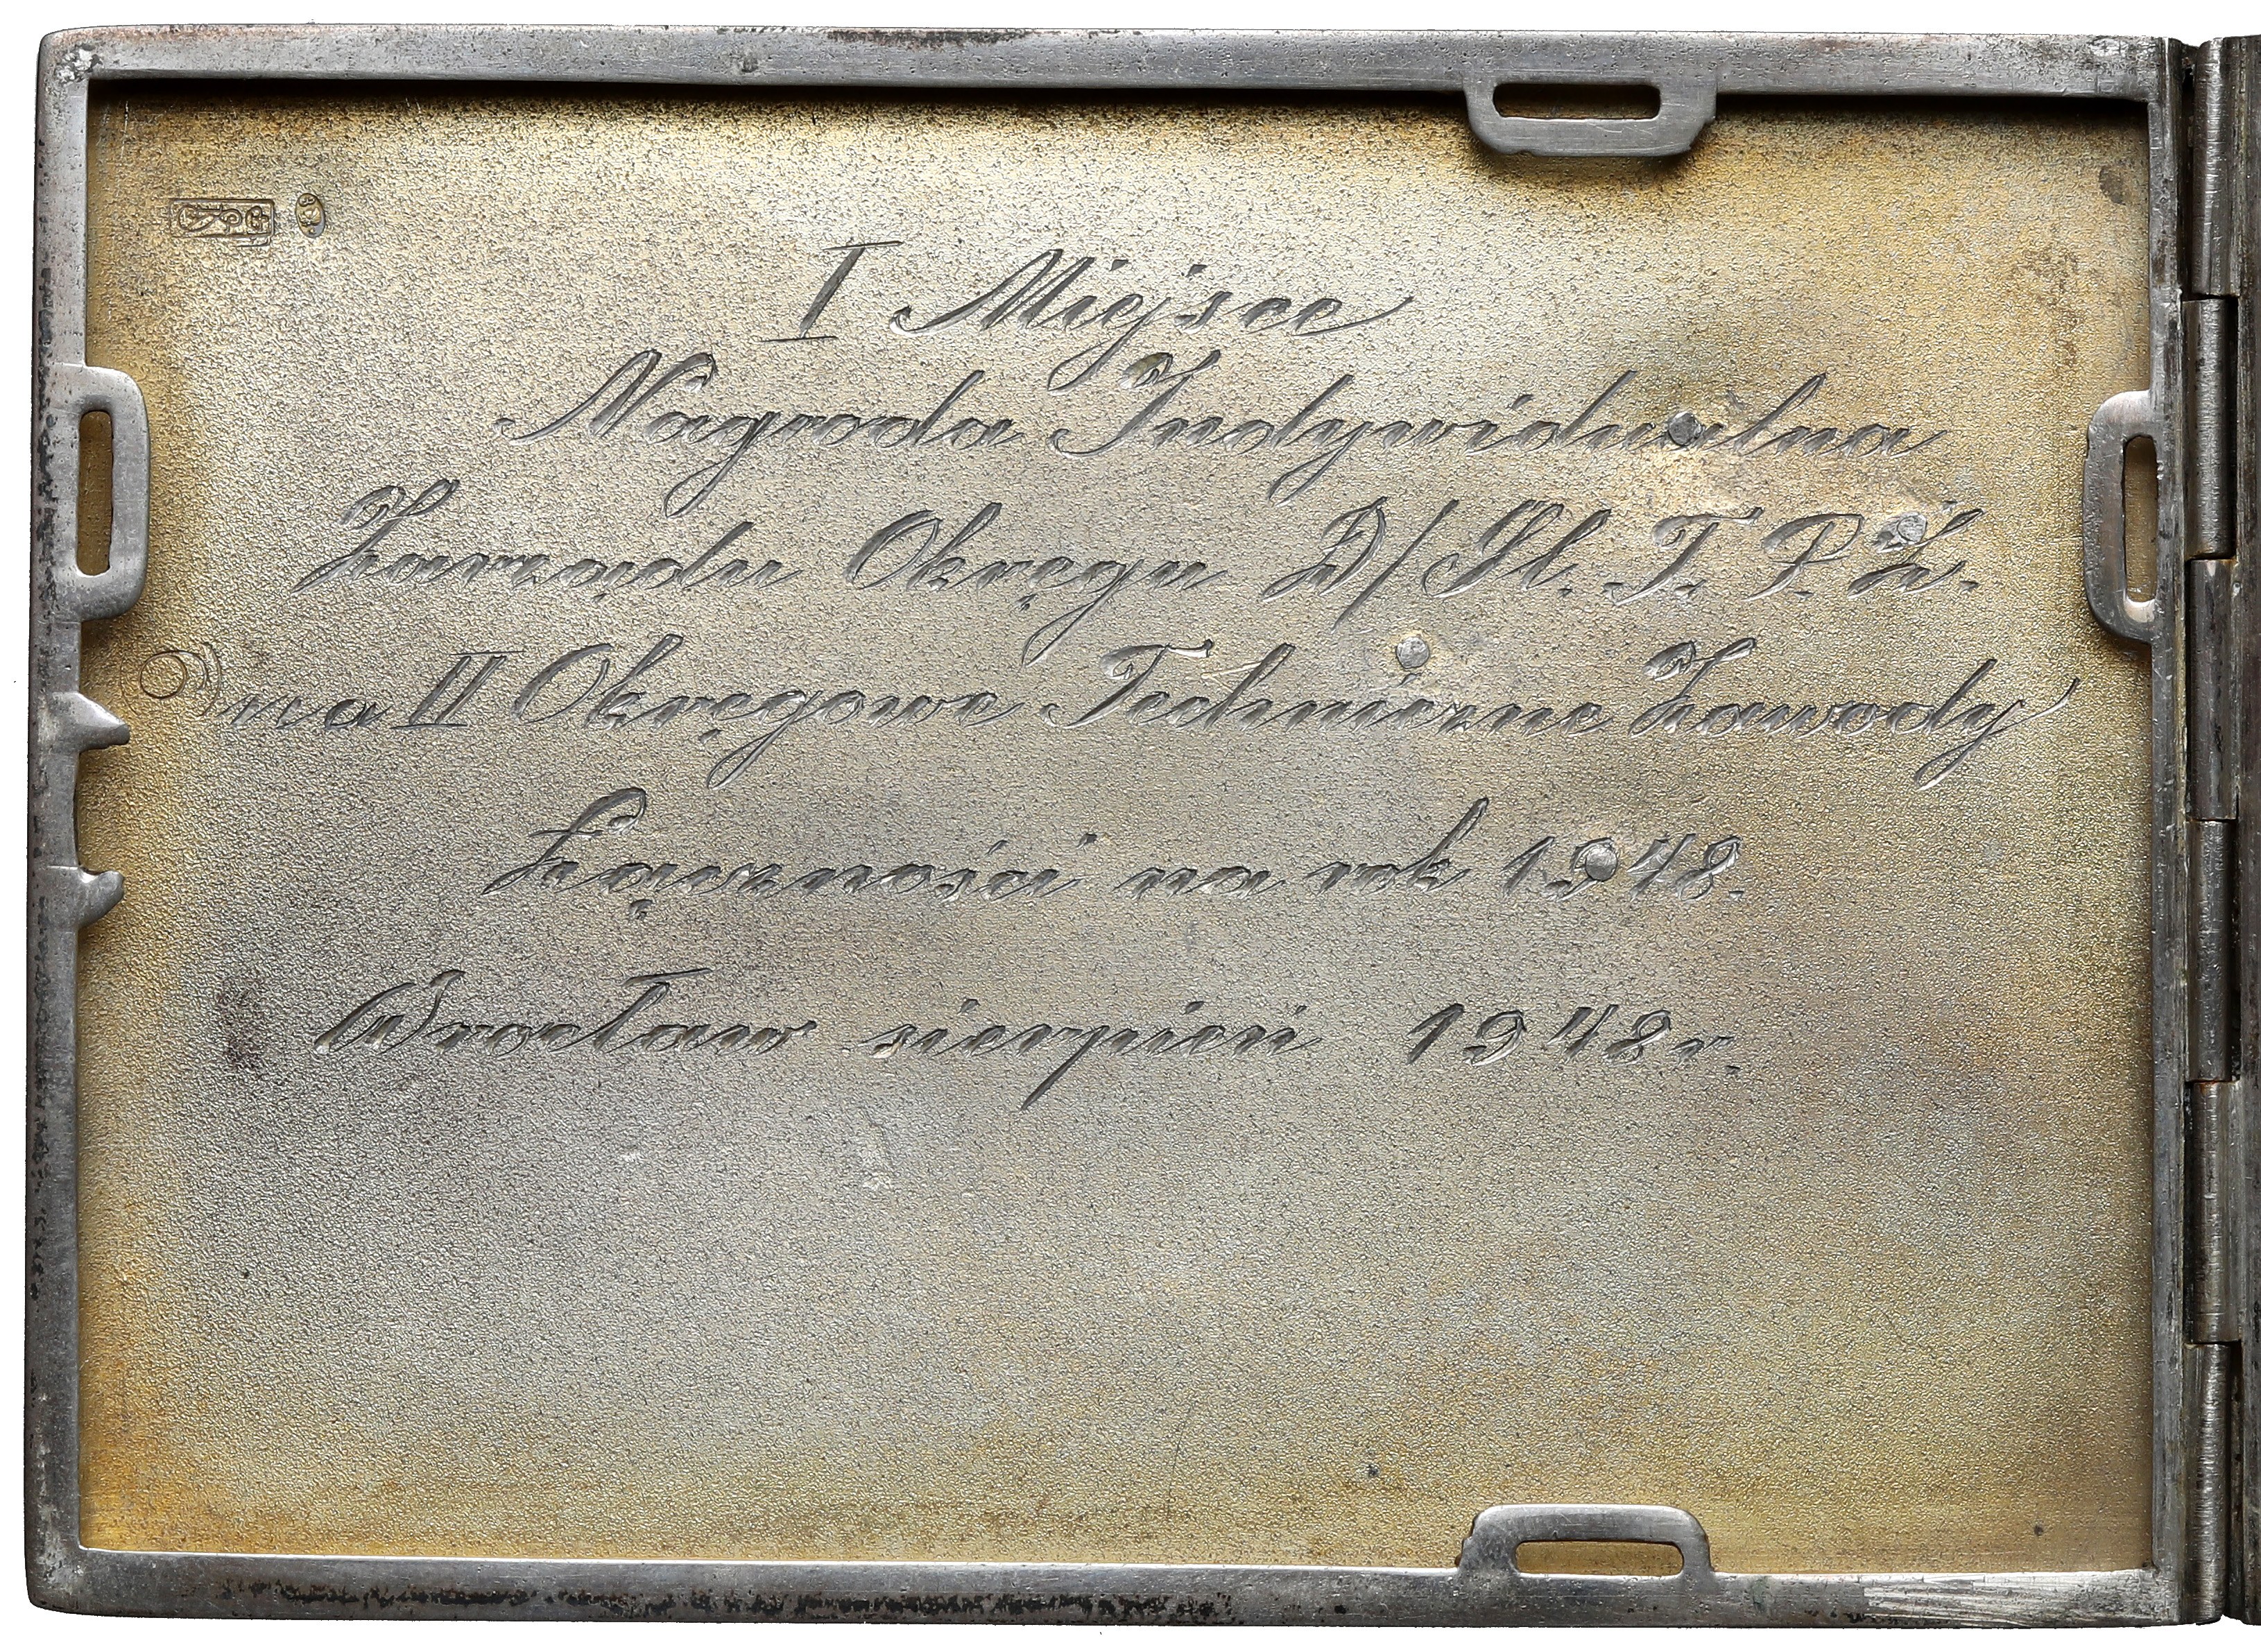 I Miejsce
Nagroda Indywidualna
Zarządu Okręgu D/Śl. T. P. Ż.
na II Okręgowe Techniczne Zawody
Łączności na rok 1948.
Wrocław sierpień 1948 r.